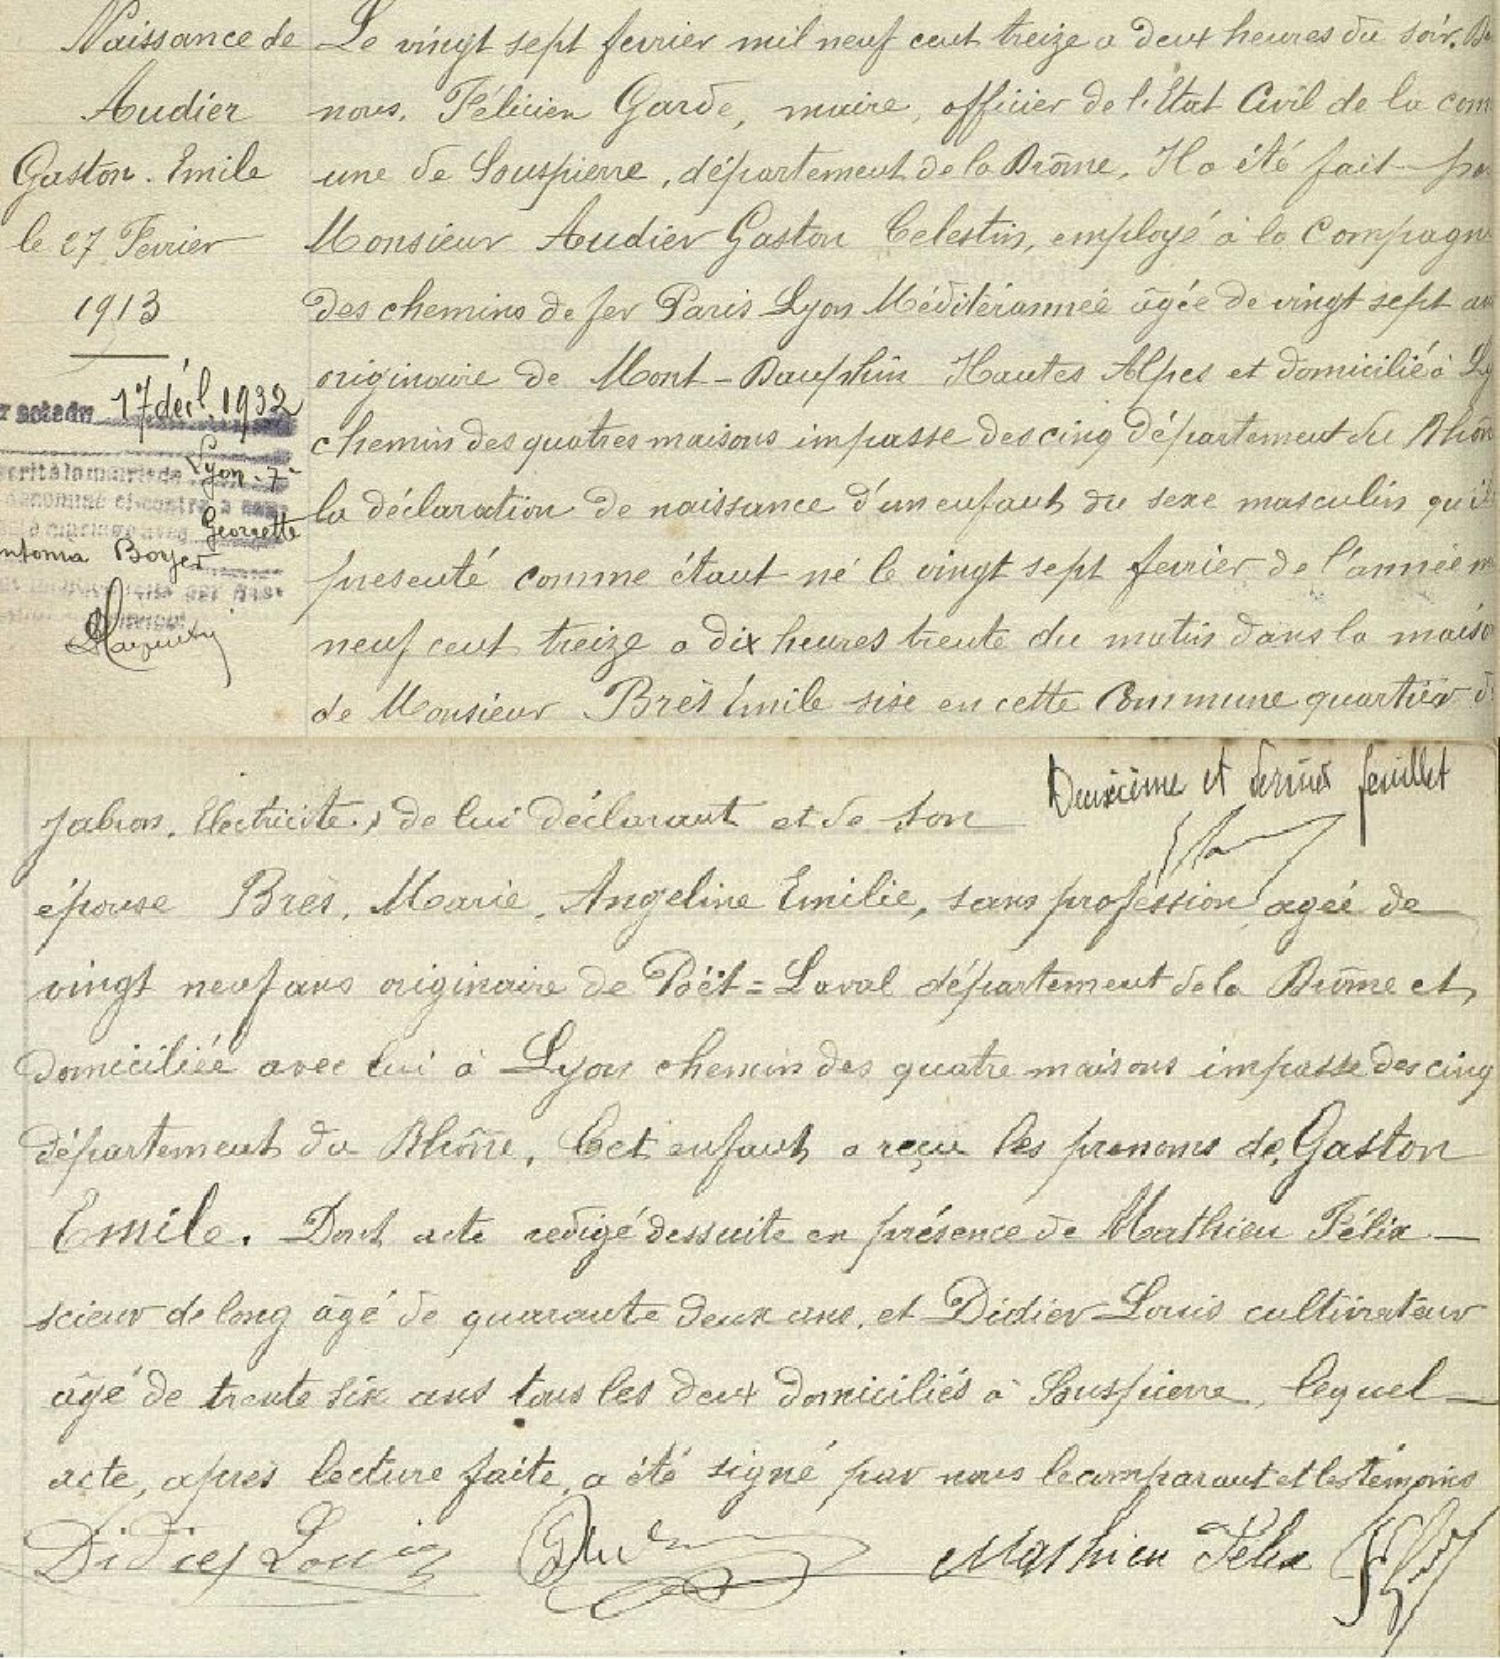 Naissance de
Audier
Gaston. Emile
le 27 Fevrier
1913
17 déc. 1932
Lyon-7e
Georgette
Boyer
Le vingt sept fevrier mil neuf cent treize a deux heures du soir. D
nous, Félicien Garde, maire, officier de l'Etat Civil de la com
une de Souspierre, département de la Drôme, Il a été fait pa
Monsieur Audier Gaston Celestin, employé à la Compagn
des chemins de fer Paris Lyon Méditérannée âgée de vingt sept an
originaire de Mont-Dauphin Hautes Alpes et domicilié à Ly
chemin des quatres maisons impasse des cinq département du Rhôn
la déclaration de naissance d'un enfant du sexe masculin qu'il
presenté comme étant né le vingt sept fevrier de l'année m
neuf cent treize a dix heures trente du matin dans la maiso
de Monsieur Brès Emile sise en cette Commune quartier d
Deuxième et dernier feuillet
Jabron, Electricité, de lui déclarant et de son
épouse Brès, Marie, Angeline Emilie, sans profession agée de
vingt neuf ans originaire de Poët=Laval département de la Drôme et
domiciliée avec lui à Lyon chemin des quatre maisons impasse des cinq
département du Rhône, Cet enfant a reçu les prenoms de, Gaston
Emile. Dont acte redigé dessuite en présence de Mathieu Félix
scieur de long âgé de quarante deux ans, et Didier Louis cultivateur
âgé de trente six ans tous les deux domiciliés à Souspierre, lequel
acte, après lecture faite, a été signé par nous le comparant et les témoins
Didier Louis Mathieu Félix